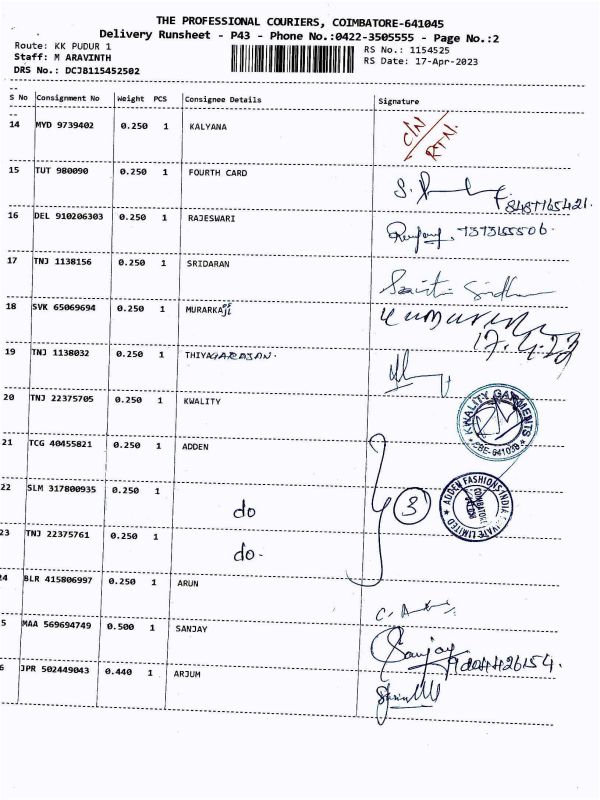 THE PROFESSIONAL COURIERS, COIMBATORE-641045
Delivery Runsheet - P43 - Phone No.:0422-3505555 - Page No.:2
Route: KK PUDUR 1
RS No.: 1154525
Staff: M ARAVINTH
RS Date: 17-Apr-2023
DRS No.: DCJB115452502
S No Consignment No Weight PCS Consignee Details Signature
14 MYD 9739402 0.250 1 KALYANA C/N RTN.
15 TUT 980090 0.250 1 FOURTH CARD
16 DEL 910206303 0.250 1 RAJESWARI
17 TNJ 1138156 0.250 1 SRIDARAN
18 SVK 65069694 0.250 1 MURARKA
17.4.23
19 TNJ 1138032 0.250 1 THIYAGARAJAN.
20 TNJ 22375705 0.250 1 KWALITY
KWALITY GARMENTS
CBE-641038
21 TCG 40455821 0.250 1 ADDEN
22 SLM 317800935 0.250 1 do
3
ADDEN FASHIONS INDIA PRIVATE LIMITED
COIMBATORE
23 TNJ 22375761 0.250 1 do.
24 BLR 415806997 0.250 1 ARUN
5 MAA 569694749 0.500 1 SANJAY Sanjay
6 JPR 502449043 0.440 1 ARJUM